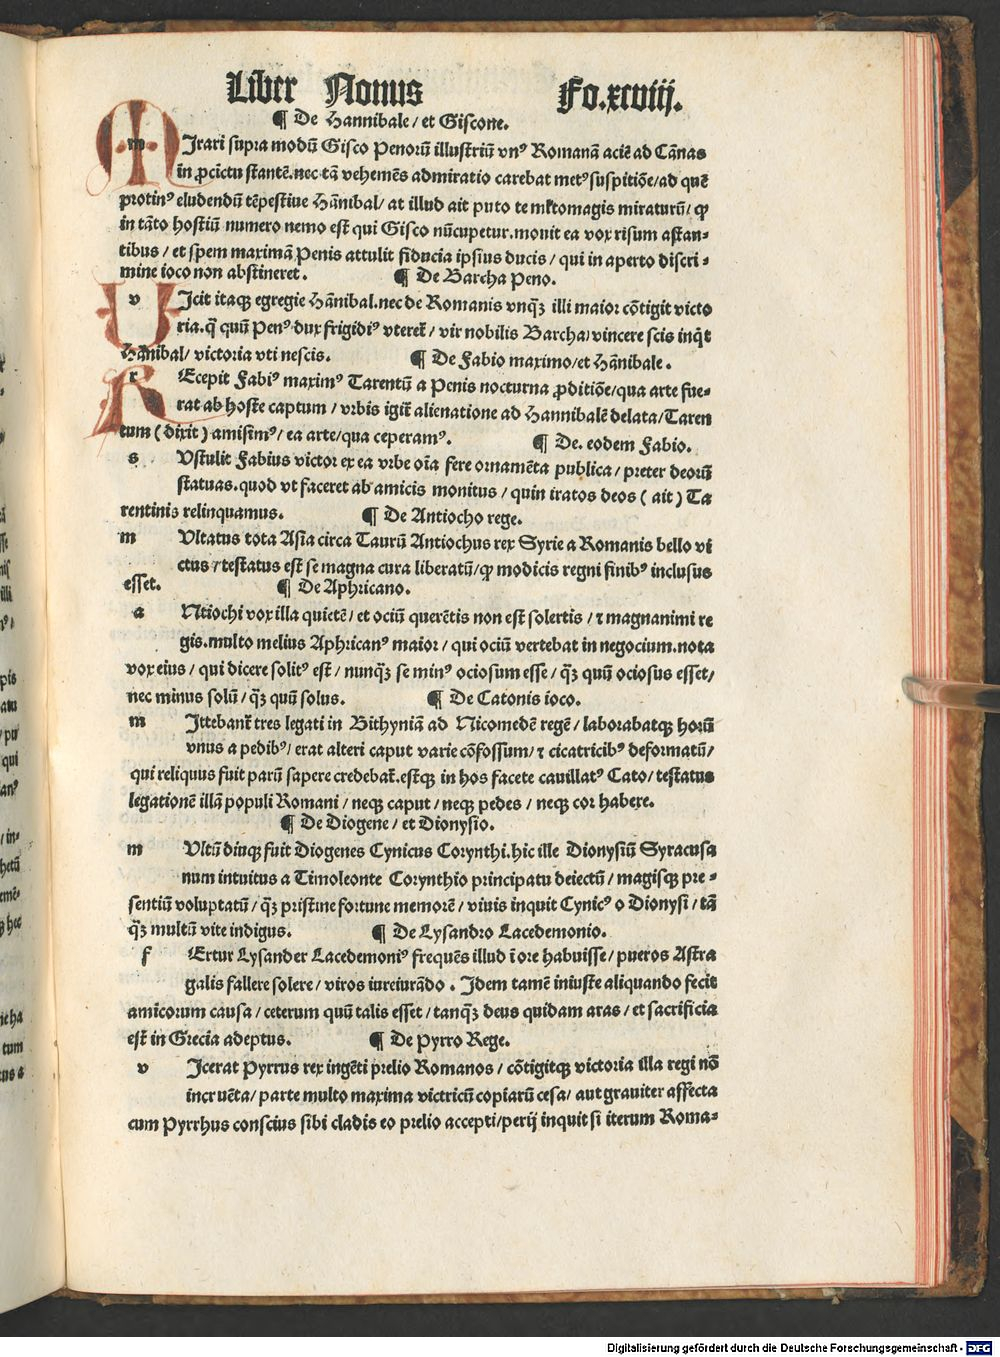 Liber Nonus Fo.xcviij.
¶ De Hannibale/ et Giscone.
m Irari supra modū Gisco Penorū illustriū vnꝰ Romanā aciē ad Cānas
in ꝓcictu stantē.nec tā vehemēs admiratio carebat metꝰ suspitiōe/ad quē
protinꝰ eludendū tēpestiue Hānibal/ at illud ait puto te mltomagis miraturū/ ꝙ
in tāto hostiū numero nemo est qui Gisco nūcupetur.mouit ea vox risum astan-
tibus/ et spem maximā Penis attulit fiducia ipsius ducis/ qui in aperto discri-
mine ioco non abstineret. ¶ De Barcha Peno.
v Icit itaqꝫ egregie Hānibal.nec de Romanis vnqꝫ illi maior cōtigit victo
ria.q̄ quū Penꝰ dux frigidiꝰ vteret̄/ vir nobilis Barcha/vincere scis inq̄t
Hānibal/ victoria vti nescis. ¶ De Fabio maximo/et Hānibale.
r Ecepit Fabiꝰ maximꝰ Tarentū a Penis nocturna ꝓditiōe/qua arte fue-
rat ab hoste captum/ vrbis igit̄ alienatione ad Hannibalē delata/Taren
tum (dixit) amisimꝰ/ ea arte/qua ceperamꝰ. ¶ De. eodem Fabio.
s Vstulit Fabius victor ex ea vrbe oīa fere ornamēta publica/ preter deorū
statuas.quod vt faceret ab amicis monitus/ quin iratos deos (ait) Ta
rentinis relinquamus. ¶ De Antiocho rege.
m Vltatus tota Asia circa Taurū Antiochus rex Syrie a Romanis bello vi
ctus/testatus est se magna cura liberatū/ꝙ modicis regni finibꝰ inclusus
esset. ¶ De Aphricano.
a Ntiochi vox illa quietē/ et ociū querētis non est solertis/ ⁊ magnanimi re
gis.multo melius Aphricanꝰ maior/ qui ociū vertebat in negocium.nota
vox eius/ qui dicere solitꝰ est/ nunqꝫ se minꝰ ociosum esse/ qꝫ quū ociosus esset/
nec minus solū/ qꝫ quū solus. ¶ De Catonis ioco.
m Ittebant̄ tres legati in Bithyniā ad Nicomedē regē/ laborabatqꝫ horū
vnus a pedibꝰ/ erat alteri caput varie cōfossum/ ⁊ cicatricibꝰ deformatū/
qui reliquus fuit parū sapere credebat̄.estqꝫ in hos facete cauillatꝰ Cato/ testatus
legationē illā populi Romani/ neqꝫ caput/ neqꝫ pedes/ neqꝫ cor habere.
¶ De Diogene/ et Dionysio.
m Vltū diuqꝫ fuit Diogenes Cynicus Corynthi.hic ille Dionysiū Syracusa
num intuitus a Timoleonte Corynthio principatu deiectū/ magisqꝫ pre-
sentiū voluptatū/ qꝫ pristine fortune memorē/ viuis inquit Cynicꝰ o Dionysi/ tā
qꝫ multū vite indigus. ¶ De Lysandro Lacedemonio.
f Ertur Lysander Lacedemoniꝰ frequēs illud ī ore habuisse/ pueros Astra
galis fallere solere/ viros iureiurādo. Idem tamē iniuste aliquando fecit
amicorum causa/ ceterum quū talis esset/ tanqꝫ deus quidam aras/ et sacrificia
est in Grecia adeptus. ¶ De Pyrro Rege.
v Icerat Pyrrus rex ingēti prelio Romanos/ cōtigitqꝫ victoria illa regi nō
incruēta/ parte multo maxima victricū copiarū cesa/ aut grauiter affecta
cum Pyrrhus conscius sibi cladis eo prelio accepti/perij inquit si iterum Roma-
Digitalisierung gefördert durch die Deutsche Forschungsgemeinschaft - DFG